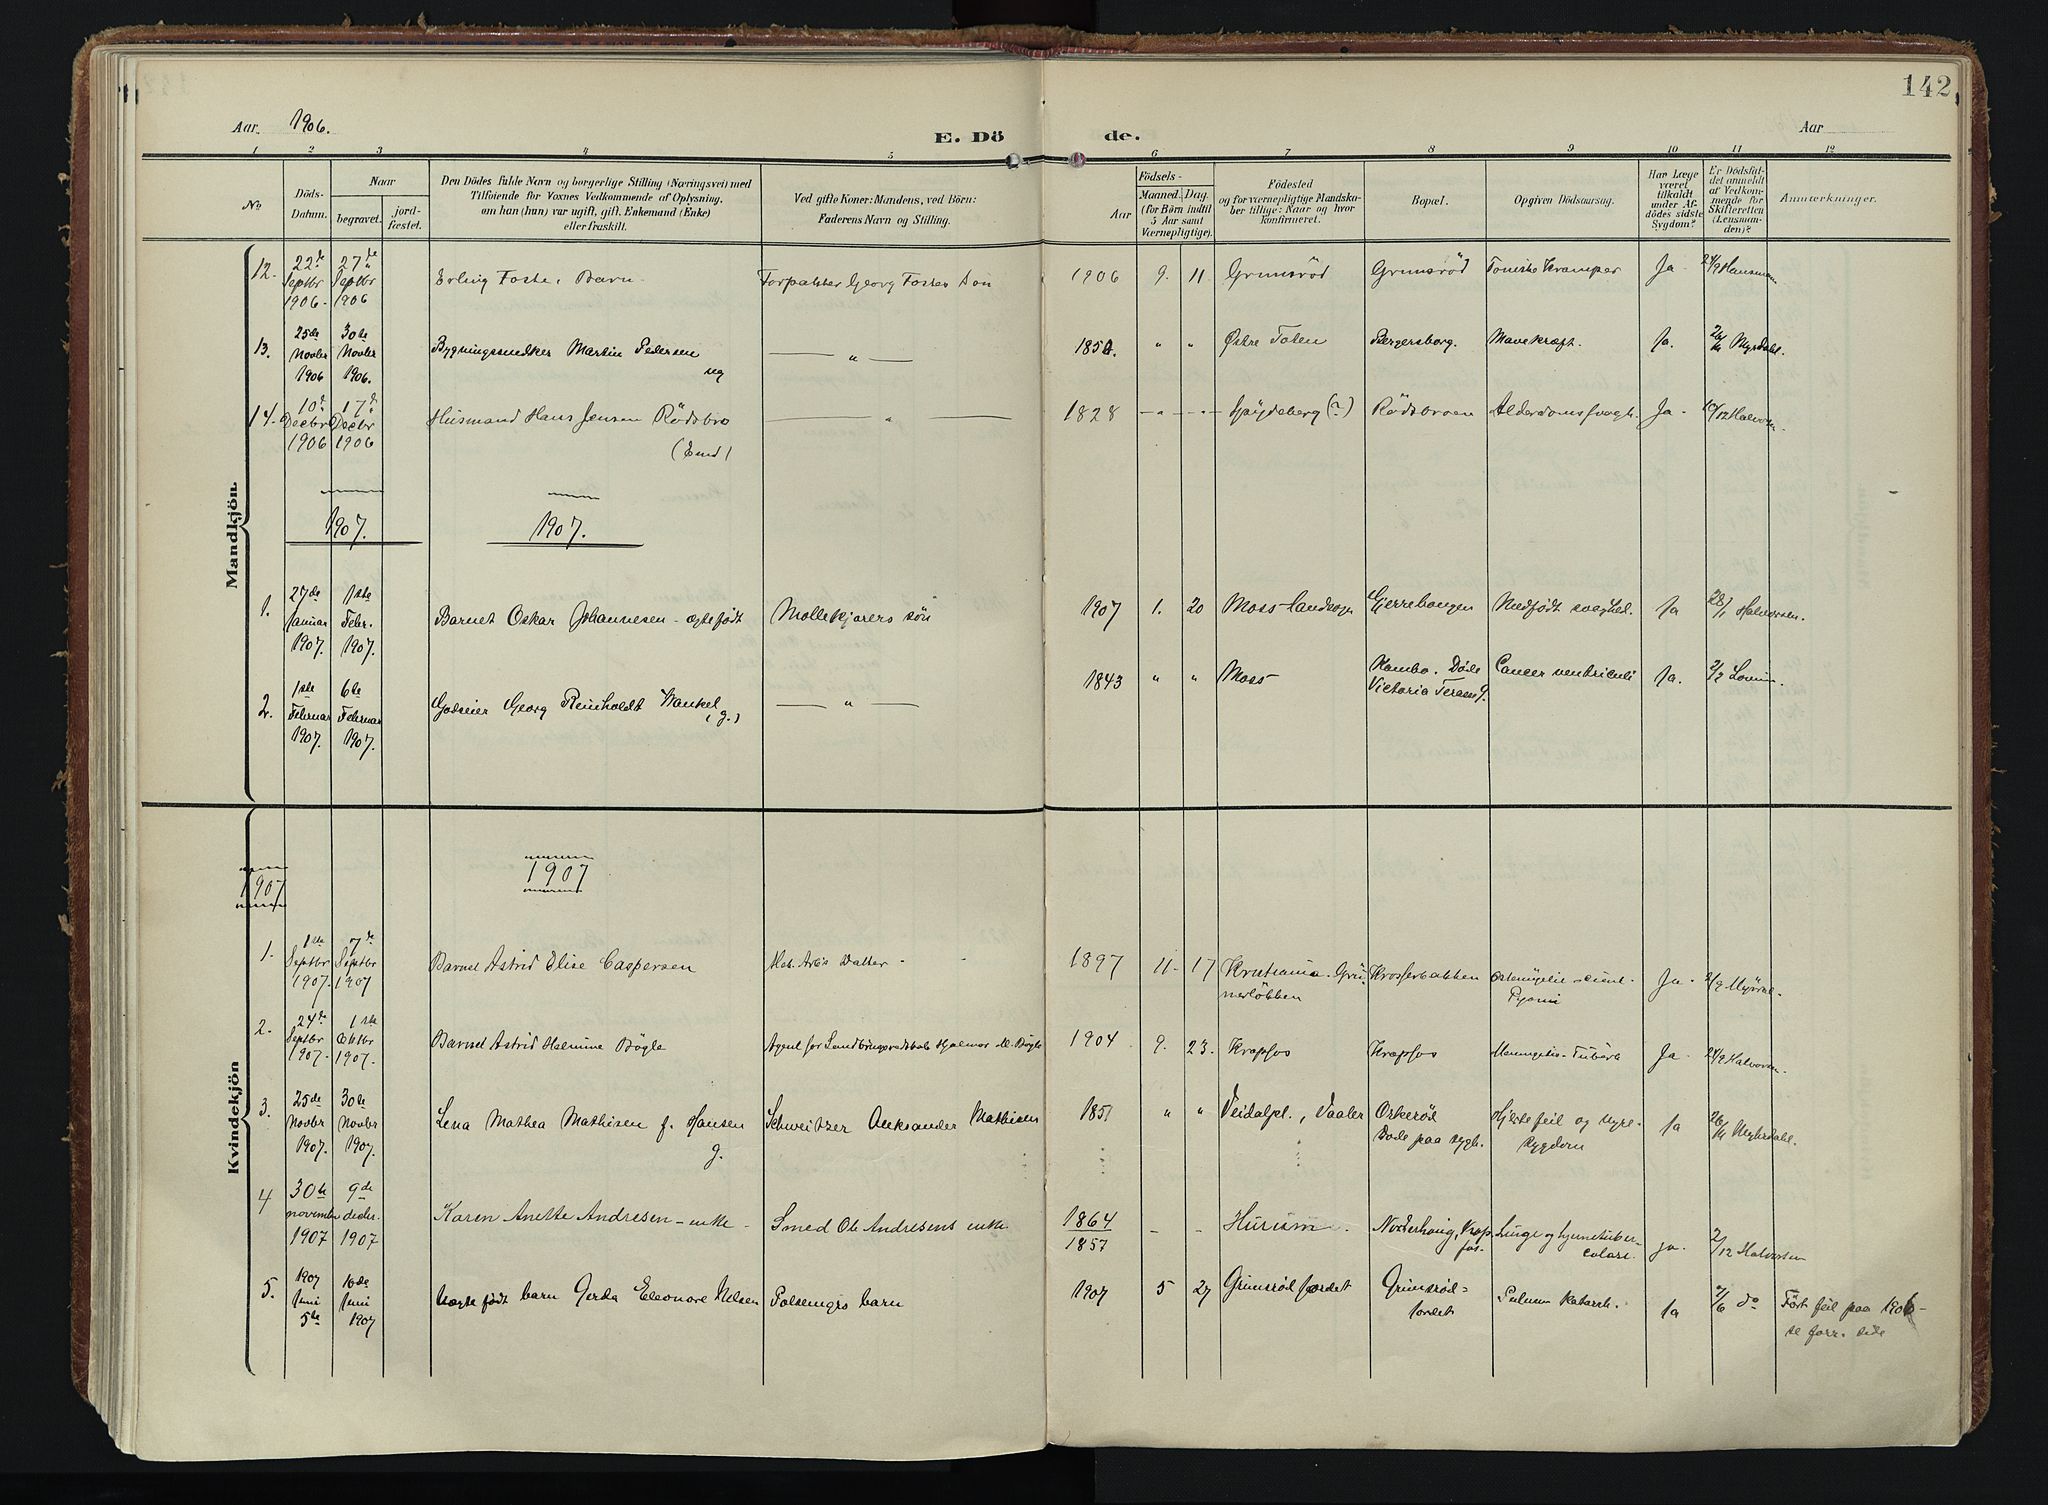 142
Aar 1906.
E. Dö de.
Aar
1 2 3 4 5 6 7 8 9 10 11 12
No
Döds-Datum.
Naar
begravet.
jord-fæstet.
Den Dödes fulde Navn og borgerlige Stilling (Næringsvei) med
Tilföiende for Voxnes Vedkommende af Oplysning,
om han (hun) var ugift, gift, Enkemand (Enke)
eller fraskilt.
Ved gifte Koner: Mandens, ved Börn:
Faderens Navn og Stilling.
Födsels-
Aar
Maaned. Dag.
(for Börn indtil
5 Aar samt
Værnepligtige).
Födested
og for værnepligtige Mandska-
ber tillige: Naar og hvor
konfirmeret.
Bopæl.
Opgiven Dödsaarsag.
Har Læge
været
tilkaldt
under Af-
dödes sidste
Sygdom?
Er Dödsfal-
det anmeldt
af Vedkom-
mende for
Skifteretten
(Lensman-
den)?
Anmærkninger.
Mandkjön.
12. 22de Septbr 1906 27de Septbr 1906 Erling Foste, Barn Forpakter Georg Fostes Søn 1906 9. 11. Grimsrød Grimsrød Toniske Kramper Ja 24/9
13. 25de Novbr 1906 30te Novbr 1906. Bygningssnedker Martin Pedersen ug — " — 185 " " Østre Toten Bergersborg. Mavekræft. Ja. 26/11 Myrdahl.
14. 10de Decbr 1906 17de Decbr 1906 Husmand Hans Jensen Rödsbro (Emd) — " — 1828 — " — Spydeberg (?) Rødsbroen Alderdomssvagh. Ja - 10/12 Halvorsen.
1907. 1907.
1. 27de Januar 1907. 1ste Febr. 1907. Barnet Oskar Johannesen - ægtefødt Møllekjørers søn 1907 1. 20 Moss Landsogn Gjerrebogen Medfødt svaghed. Ja 28/1 Halvorsen.
2. 1ste Februar 1907. 6te Februar 1907. Godseier Georg Reinholdt Wankel (g.) — " — 1843 " " Moss Kambo. Døde Victoria Terasse 9. Cancer ventriculi Ja. 2/2
Kvindekjön
1907 1907
1. 1ste Septbr 1907. 7de Septbr 1907 Barnet Astrid Elise Caspersen Arb's Datter - 1897 11 - 17 Kristiania - Grü-
nerløkken Krosserbakken Pyæmi Ja - 2/9
2. 24de Septbr 1907. 1ste Oktbr 1907. Barnet Astrid Helmine Bøgle Agent for Landbrugsredskab Hjalmar M. Bøgle 1904 9. 23. Krapfos Krapfos Meningitis Tuberk Ja - 24/9 Halvorsen.
3. 25de Novbr 1907. 30te Novbr 1907. Lena Mathea Mathisen f. Hansen g. Schweitzer Aleksander Mathisen 1851 " " Veidalpl., Vaaler Orkerød
Døde paa sygh. Hjertefeil og nyre-
sygdom Ja 26/11 Myhrdahl.
4 30te november 1907 9de decbr. 1907 Karen Anette Andresen - enke - Smed Ole Andresens enke 1864
1857 - - Hurum Norderhaug, Krap-
fos. Lunge og hjernetuber-
culose. ja. 2/12 Halvorsen
5. 1907 Juni 5te 16de Juni 1907 Uægte født barn Gerda Eleonore Nelsen Pølsemgrs barn 1907 5 27 Grimsrødfjordet Grimsrød-
fjordet Pulmon Katarrh. Ja 7/6 do Ført feil paa 1906 -
se forr. side